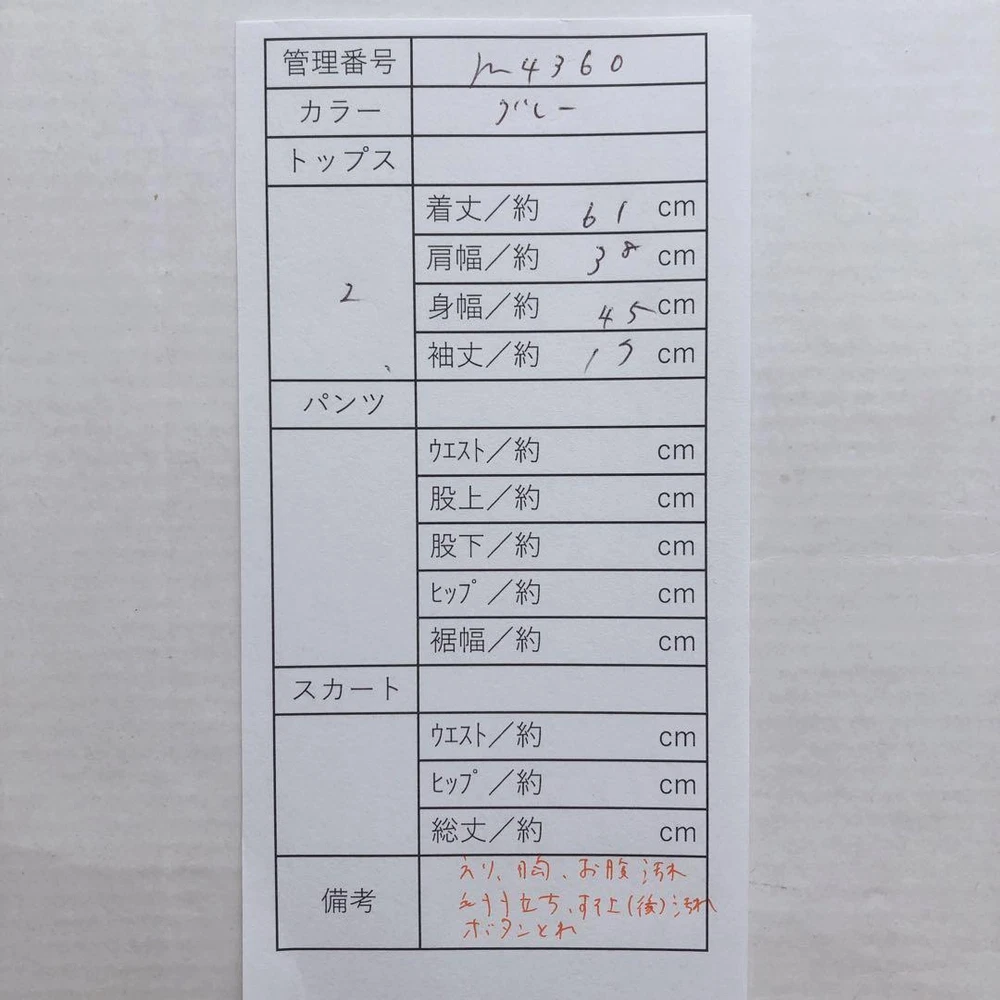 管理番号 m4360
カラー グレー
トップス
2
着丈／約 61 cm
肩幅／約 38 cm
身幅／約 45 cm
袖丈／約 cm
パンツ
ウエスト／約 cm
股上／約 cm
股下／約 cm
ヒップ／約 cm
裾幅／約 cm
スカート
ウエスト／約 cm
ヒップ／約 cm
総丈／約 cm
備考
えり、胸、お腹 汚れ
立ち、 (後)汚れ
ボタンとれ